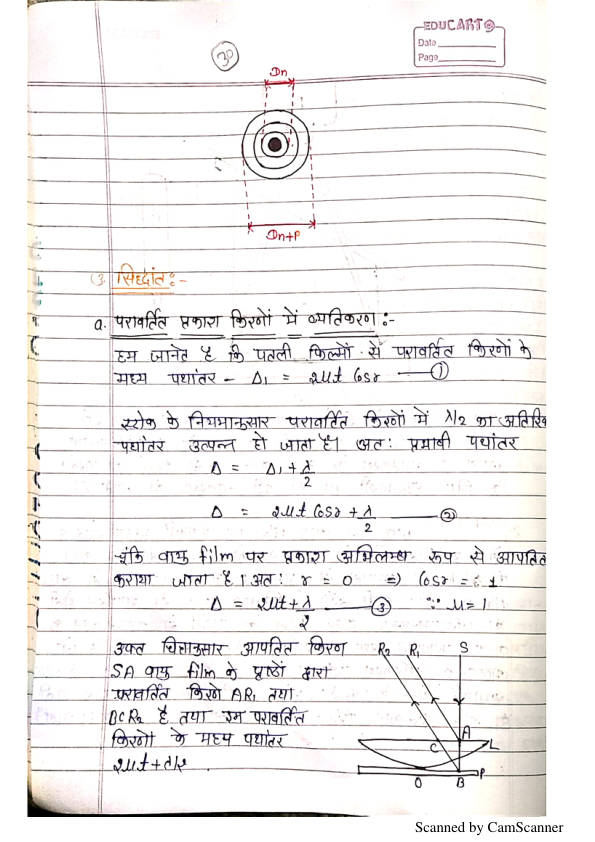 30
EDUCART
Date
Page
Dn
Dn+P
3. सिद्धांत:-
a. परावर्तित प्रकाश किरणों में व्यतिकरण :-
हम जानते है कि पतली फिल्मों से परावर्तित किरणों के
मध्य पथांतर - Δ₁ = 2μt Cosr —①
स्टोक के नियमानुसार परावर्तित किरणों में λ/2 का अतिरिक्त
पथांतर उत्पन्न हो जाता है। अत: प्रभावी पथांतर
Δ = Δ₁ + λ/2
Δ = 2μt Cosr + λ/2 —②
चूंकि वायु film पर प्रकाश अभिलम्ब रूप से आपतित
कराया जाता है। अत: r = 0 => Cosr = 1
Δ = 2μt + λ/2 —③ ∵ μ = 1
उक्त चित्रानुसार आपतित किरण
SA वायु film के पृष्ठों द्वारा
परावर्तित किरणे AR₁ तथा
BCR₂ है तथा इन परावर्तित
किरणों के मध्य पथांतर
2μt + λ/2 .
R₂ R₁ S
A
C L
P
O B
Scanned by CamScanner